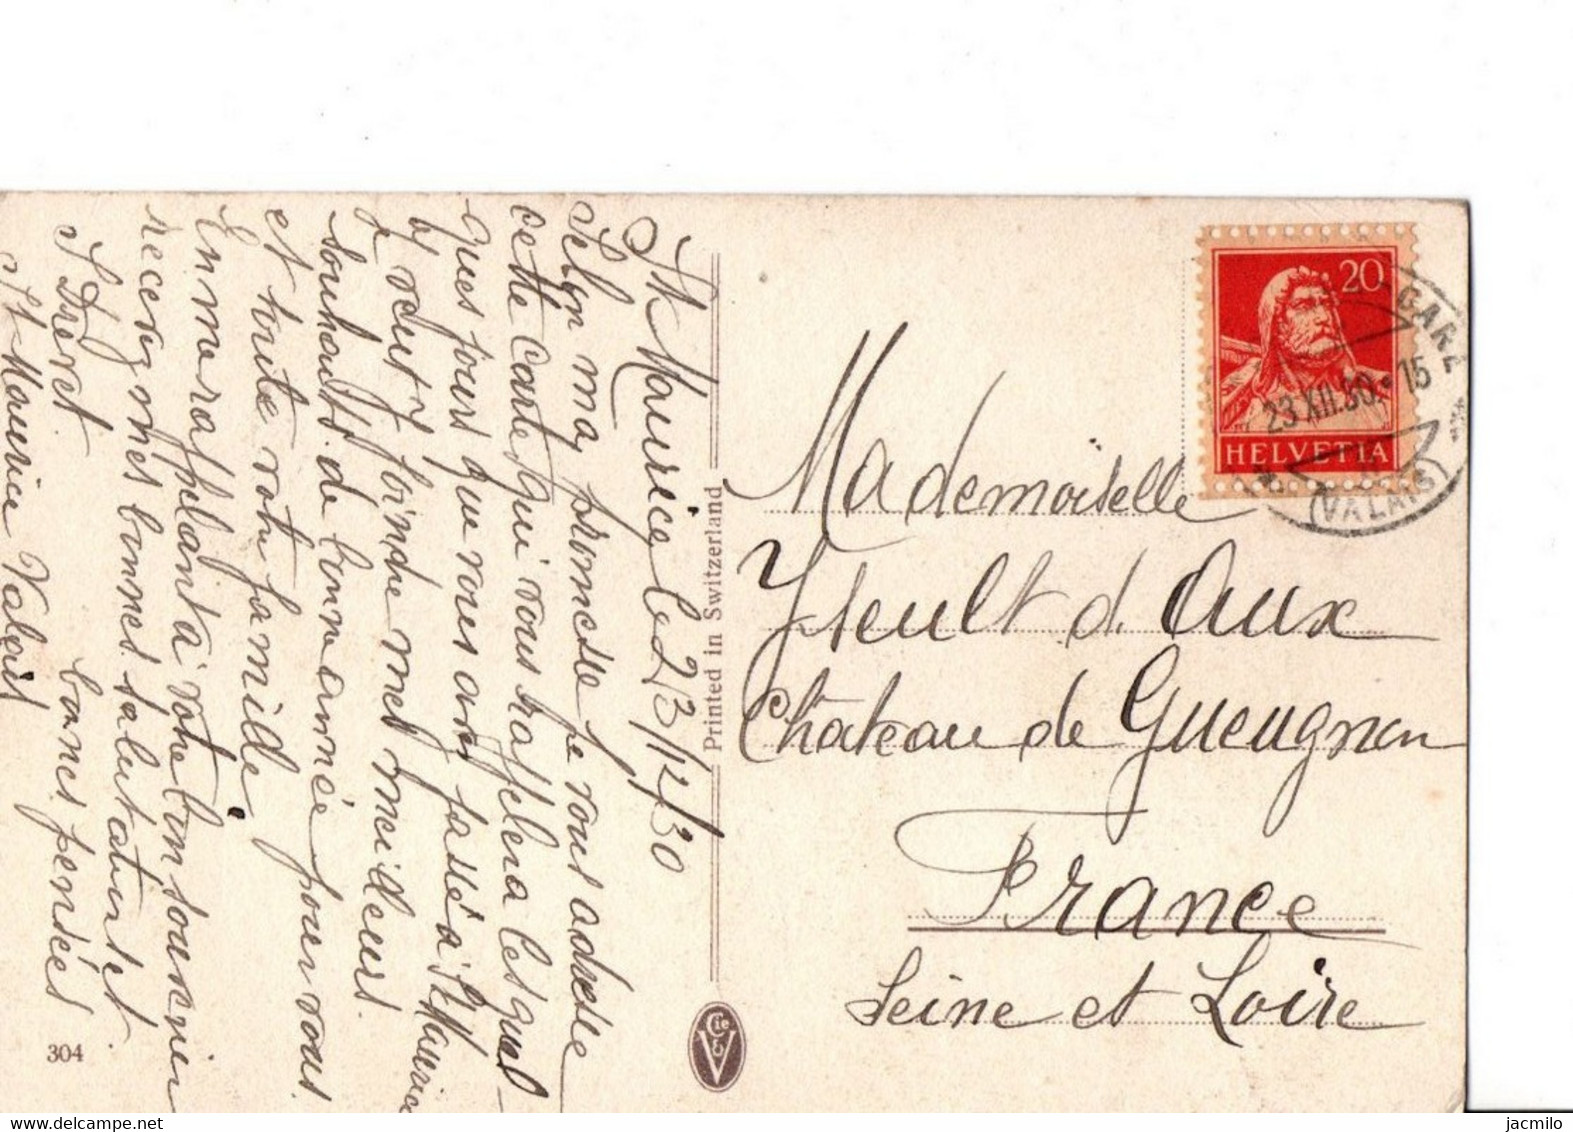 St Maurice le 23/12/30
Selon ma promesse je vous adresse
cette carte qui vous rappelera les quel-
ques jours que vous avez passé à St Maurice
j'y joindre mes meilleurs
souhaits de bonne année pour vous
et toute votre famille
En me rappelant à votre bon souvenir
recevez mes bonnes salutations et
bonnes pensées
St Maurice Valais
Printed in Switzerland
304
Cie
V
20
HELVETIA
GARE
23.XII.30.-15
(VALAIS)
Mademoiselle
Yseult d. Aux
Château de Gueugnon
France
Seine et Loire
delcampe.net
jacmilo